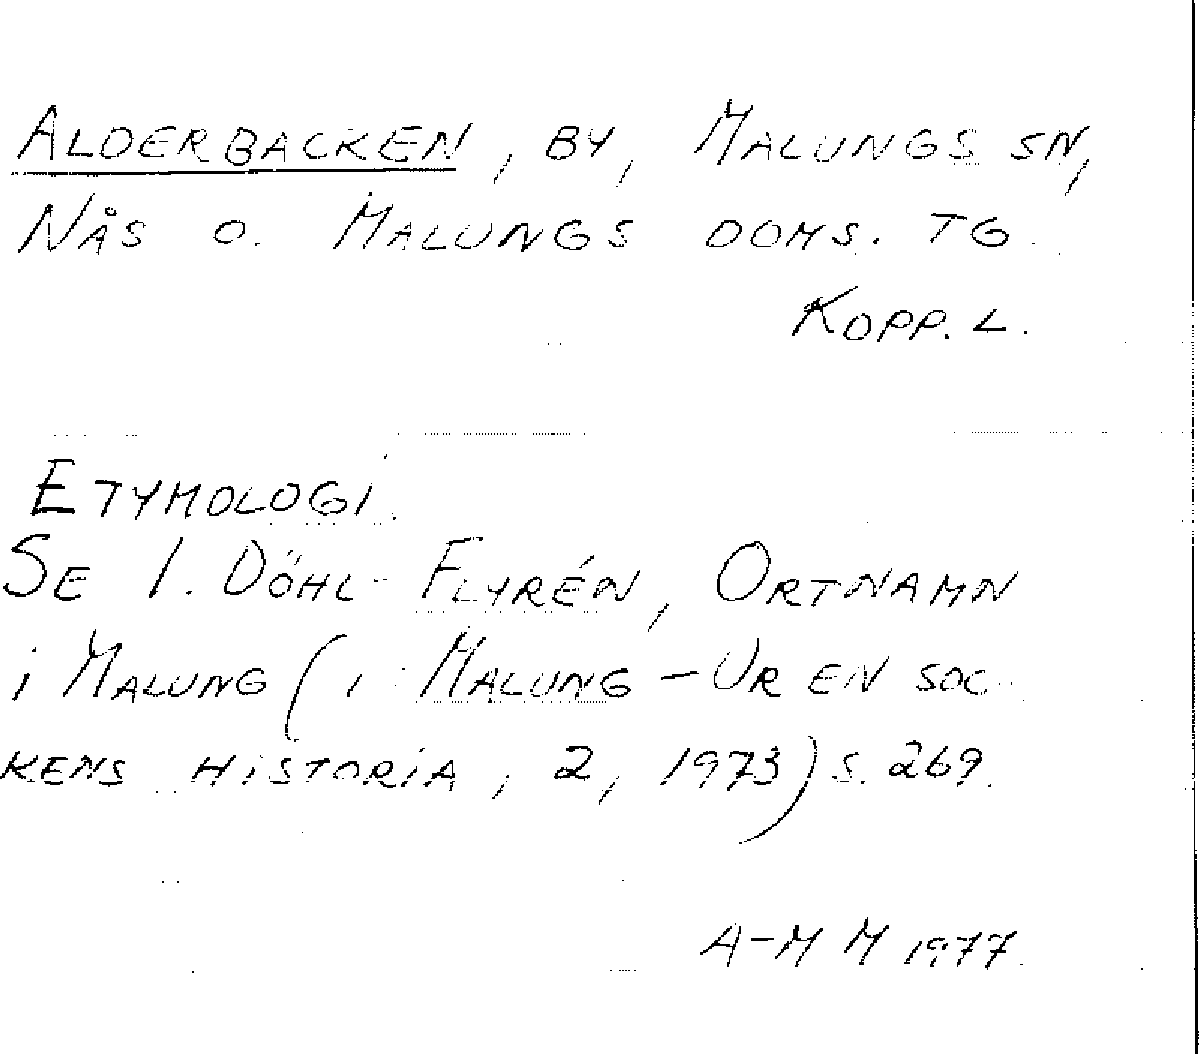 ALDERBACKEN, BY, MALUNGS SN,
NÅS O. MALUNGS DOMS. TG.
KOPP. L.
ETYMOLOGI.
SE I. DÖHL-FLYRÉN, ORTNAMN
i MALUNG (i MALUNG – UR EN SOC-
KENS HISTORIA, 2, 1973) S. 269.
A-M M 1977.